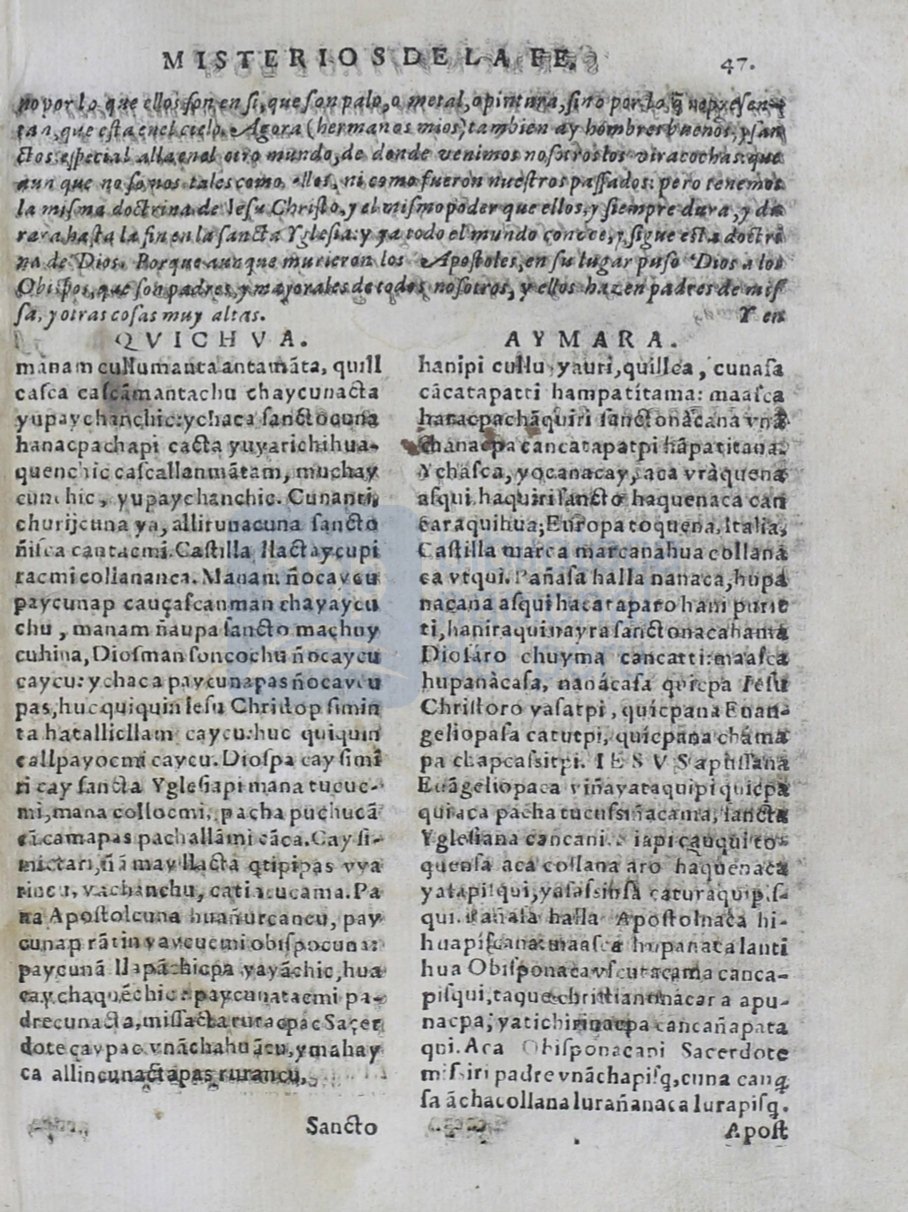 MISTERIOS DE LA FE, 47.
no por lo que ellos son en si, que son palo, o metal, o pintura, sino por lo q̃ represen-
tan, que esta en el cielo. Agora (hermanos mios) tambien ay hombres buenos, y san
ctos, especial alla en el otro mundo, de donde venimos nosotros los viracochas: que
aun que no somos tales como ellos, ni como fueron nuestros passados: pero tenemos
la misma doctrina de Iesu Christo, y el mismo poder que ellos, y siempre dura, y du
rara hasta la fin en la sancta Yglesia: y ya todo el mundo conoce, y sigue esta doctri
na de Dios. Porque aunque murieron los Apostoles, en su lugar puso Dios a los
Obispos, que son padres, y mayorales de todos nosotros, y ellos hazen padres de mis
sa, y otras cosas muy altas. Y en
QVICHVA.
mãnam cullumanta antamãta, quill
casca cascãmantachu chaycunacta
yupaychanchic: ychaca sanctocuna
hanacpachapi cacta yuyarichihua-
quenchic cascallanmãtam, muchay
cunchic, yupaychanchic. Cunanri,
churijcuna ya, allirunacuna sancto
ñisca cantacmi. Castilla llactaycupi
racmi collananca. Manam ñocaycu
paycunap cauçascanman chayaycu
chu, manam ñaupa sancto machuy
cuhina, Diosman soncochu ñocaycu
caycu: ychaca paycunapas ñocaycu
pas, huc quiquin Iesu Christop simin
ta hatallicllam caycu: huc quiquin
callpayocmi caycu. Diospa cay simi
ri cay sancta Yglesiapi mana tucuc-
mi, mana collocmi, pacha puchucã
cãcamapas pachallãmi cãca. Cay si-
mictari, ñã may llacta q̃tipipas vya
rincu, vachanchu, catincucama. Pa
na Apostolcuna huañurcancu, pay
cunap rãtin yaycucmi obispocuna:
paycunã llapãchicpa yayãchic, hua
cay chaquechic: paycunatacmi pa-
drecunacta, missacta ruracpac Sacer
dote cãypac vnãchahuãcu, ymahay
ca allincunactapas rurancu,
Sancto
AYMARA.
hanipi cullu, yauri, quillca, cunasa
cãcatapatti hampatitama: maasca
hanacpachãquiri sanctonàcana vnã
chanacpa cãncatapatpi hãpatitana.
Ychasca, yocanacay, aca vràquena
asqui haquiri sancto haquenaca can
caraquihua; Europa toquena, Italia,
Castilla marca marcanahua collanà
ca vtqui. Pañasa halla nanaca, hupa
nacana asqui hacataparo hani purit
ti, haniraqui nayra sanctonacahama
Diosàro chuyma cancatti: maasca
hupanàcasa, nanácasa quicpa Iesu
Christoro yasatpi, quicpana Euan-
geliopasa catutpi, quicpana chama
pa chapcassitpi. IESVS apussana
Euãgeliopaca viñayataquipi quicpa
quiraca pacha tucussiñacama, sancta
Yglesiana cancani. iapi cauqui to-
quensa aca collana aro haquenaca
yatapisqui, yasassinsa caturàquip, sa
qui. Pañasa halla Apostolnaca hi-
huapiscana: maasca hupanaca lanti
hua Obisponaca vscutacama canca-
pisqui, taque christianonácar a apu-
nacpa, yatichirinacpa cancañapata
qui. Aca Obisponacapi Sacerdote
missiri padre vnãchapisq̃, cuna cauq̃
sa ãcha collana lurañanaca lurapisq̃.
Apost